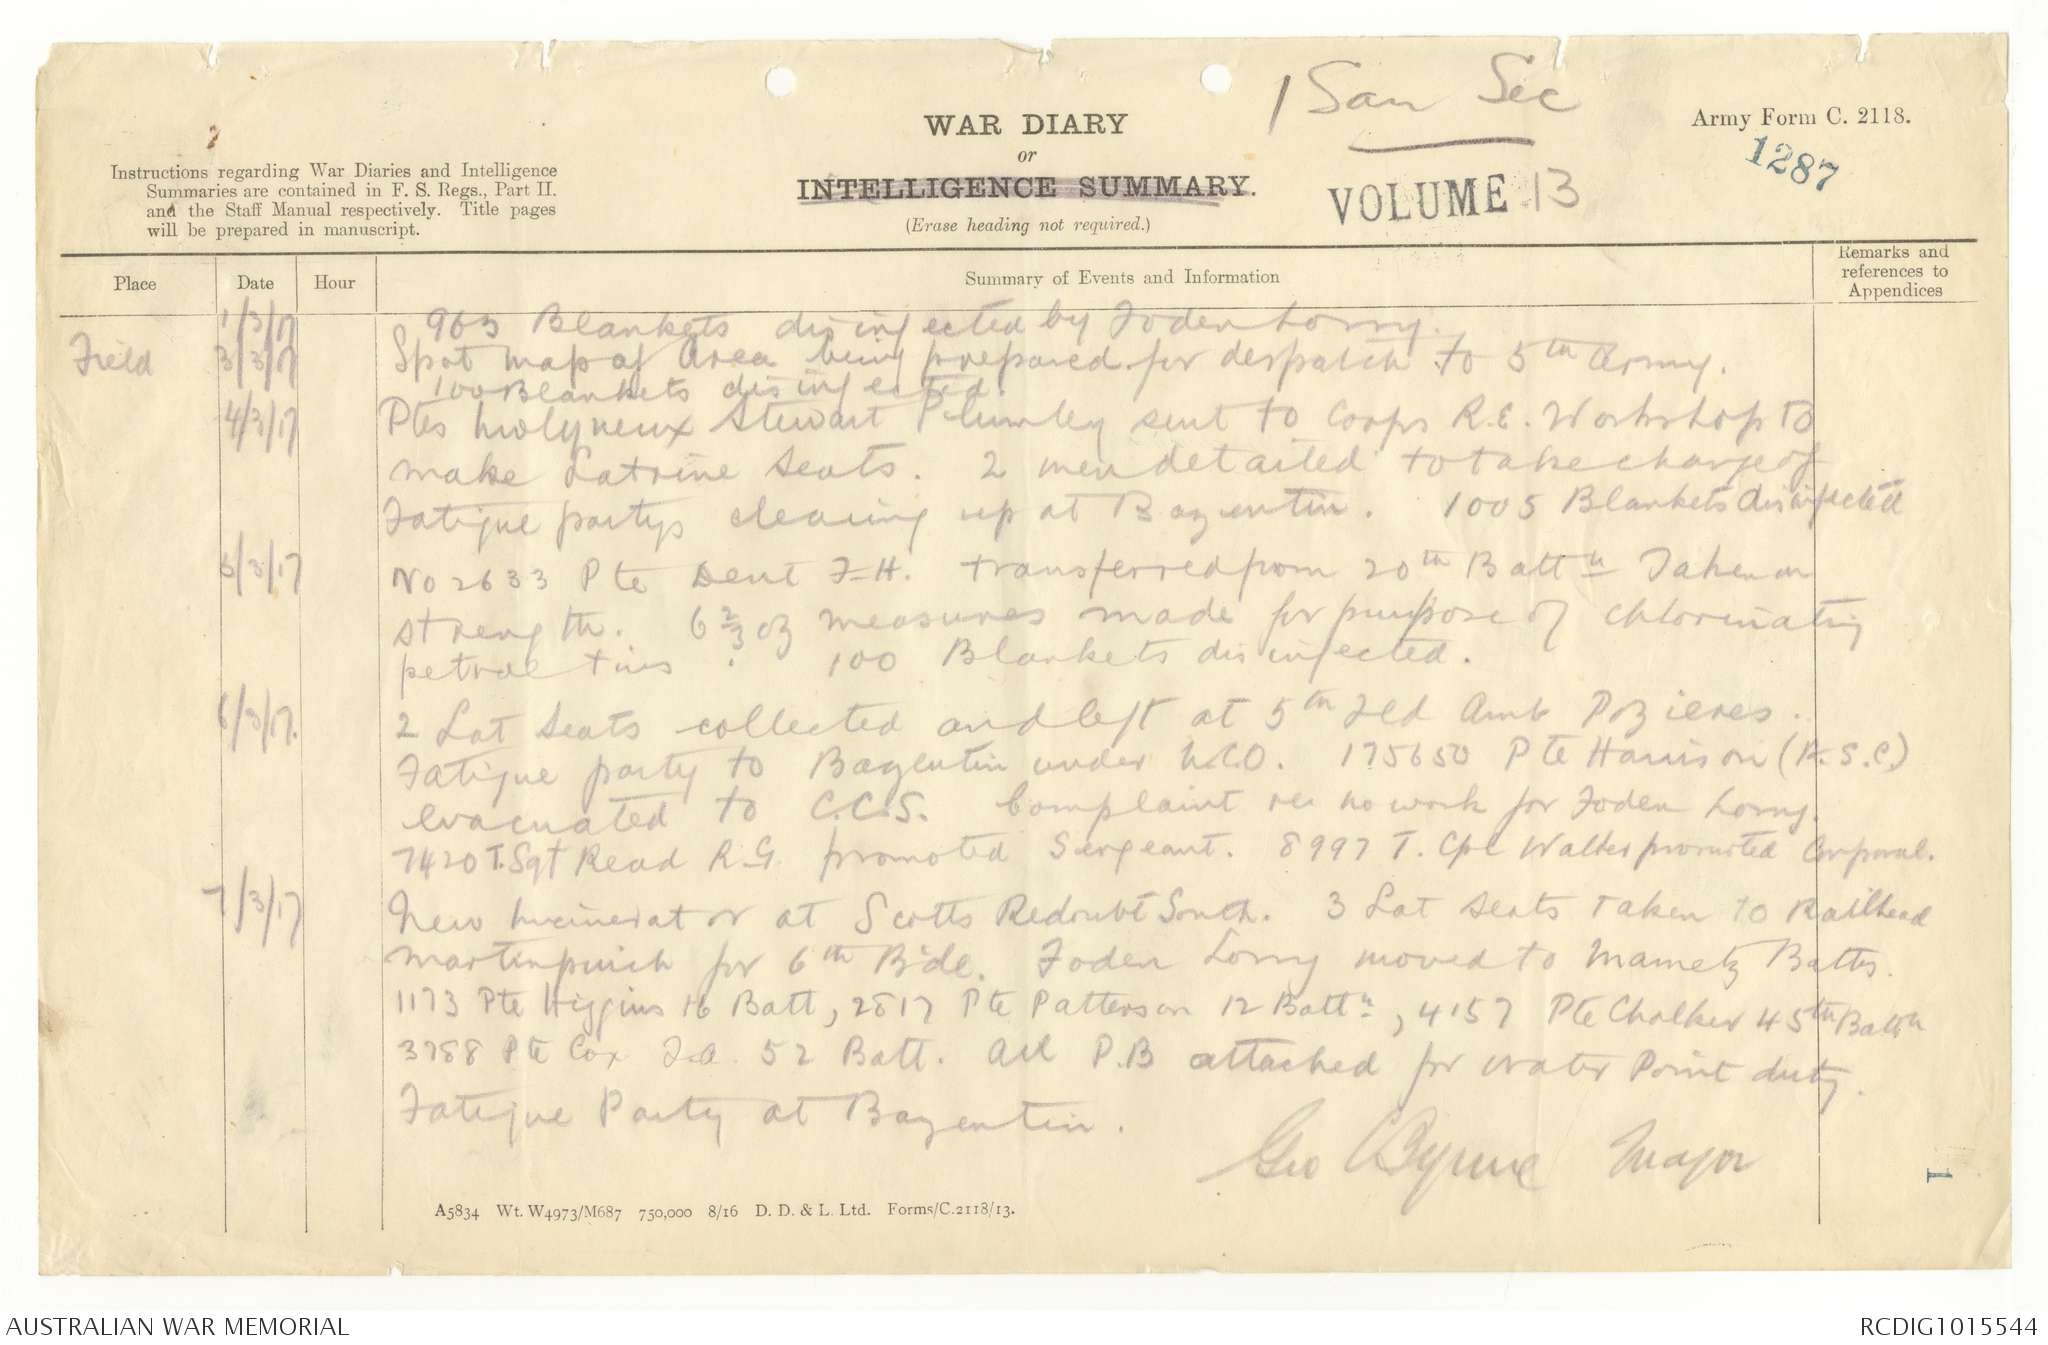 1 San Sec
WAR DIARY
or
INTELLIGENCE SUMMARY.
(Erase heading not required.)
Army Form C. 2118.
1287
VOLUME 13
Instructions regarding War Diaries and Intelligence
Summaries are contained in F. S. Regs., Part II.
and the Staff Manual respectively. Title pages
will be prepared in manuscript.
Place Date Hour Summary of Events and Information Remarks and references to Appendices
1/3/17 963 Blankets disinfected by Foden Lorry.
Field 3/3/17 Spot map of Area being prepared for despatch to 5th Army.
100 Blankets disinfected.
4/3/17 Ptes Molyneux Stewart Plumley sent to Corps R.E. Workshop to
make Latrine Seats. 2 men detailed to take charge of
Fatigue partys cleaning up at Bazentin. 1005 Blankets disinfected
5/3/17 No 2633 Pte Dent F.H. transferred from 20th Battn Taken on
strength. 6 2/3 oz measures made for purpose of chlorinating
petrol tins. 100 Blankets disinfected.
6/3/17. 2 Lat Seats collected and left at 5th Fld Amb Pozieres.
Fatigue party to Bazentin under N.C.O. 175650 Pte Harrison (A.S.C.)
evacuated to C.C.S. Complaint re no work for Foden Lorry.
7420 T.Sgt Read R.G. promoted Sergeant. 8997 T. Cpl Walker promoted Corporal.
7/3/17 New Incinerator at Scotts Redoubt South. 3 Lat Seats taken to Railhead
Martinpuich for 6th Bde. Foden Lorry moved to Mametz Baths.
1173 Pte Higgins 16 Batt, 2817 Pte Patterson 12 Battn, 4157 Pte Chalker 45th Battn
3788 Pte Cox F.A. 52 Batt. All P.B attached for Water Point duty.
Fatigue Party at Bazentin.
Geo C Byrne Major
1
A5834 Wt. W4973/M687 750,000 8/16 D. D. & L. Ltd. Forms/C.2118/13.
AUSTRALIAN WAR MEMORIAL
RCDIG1015544